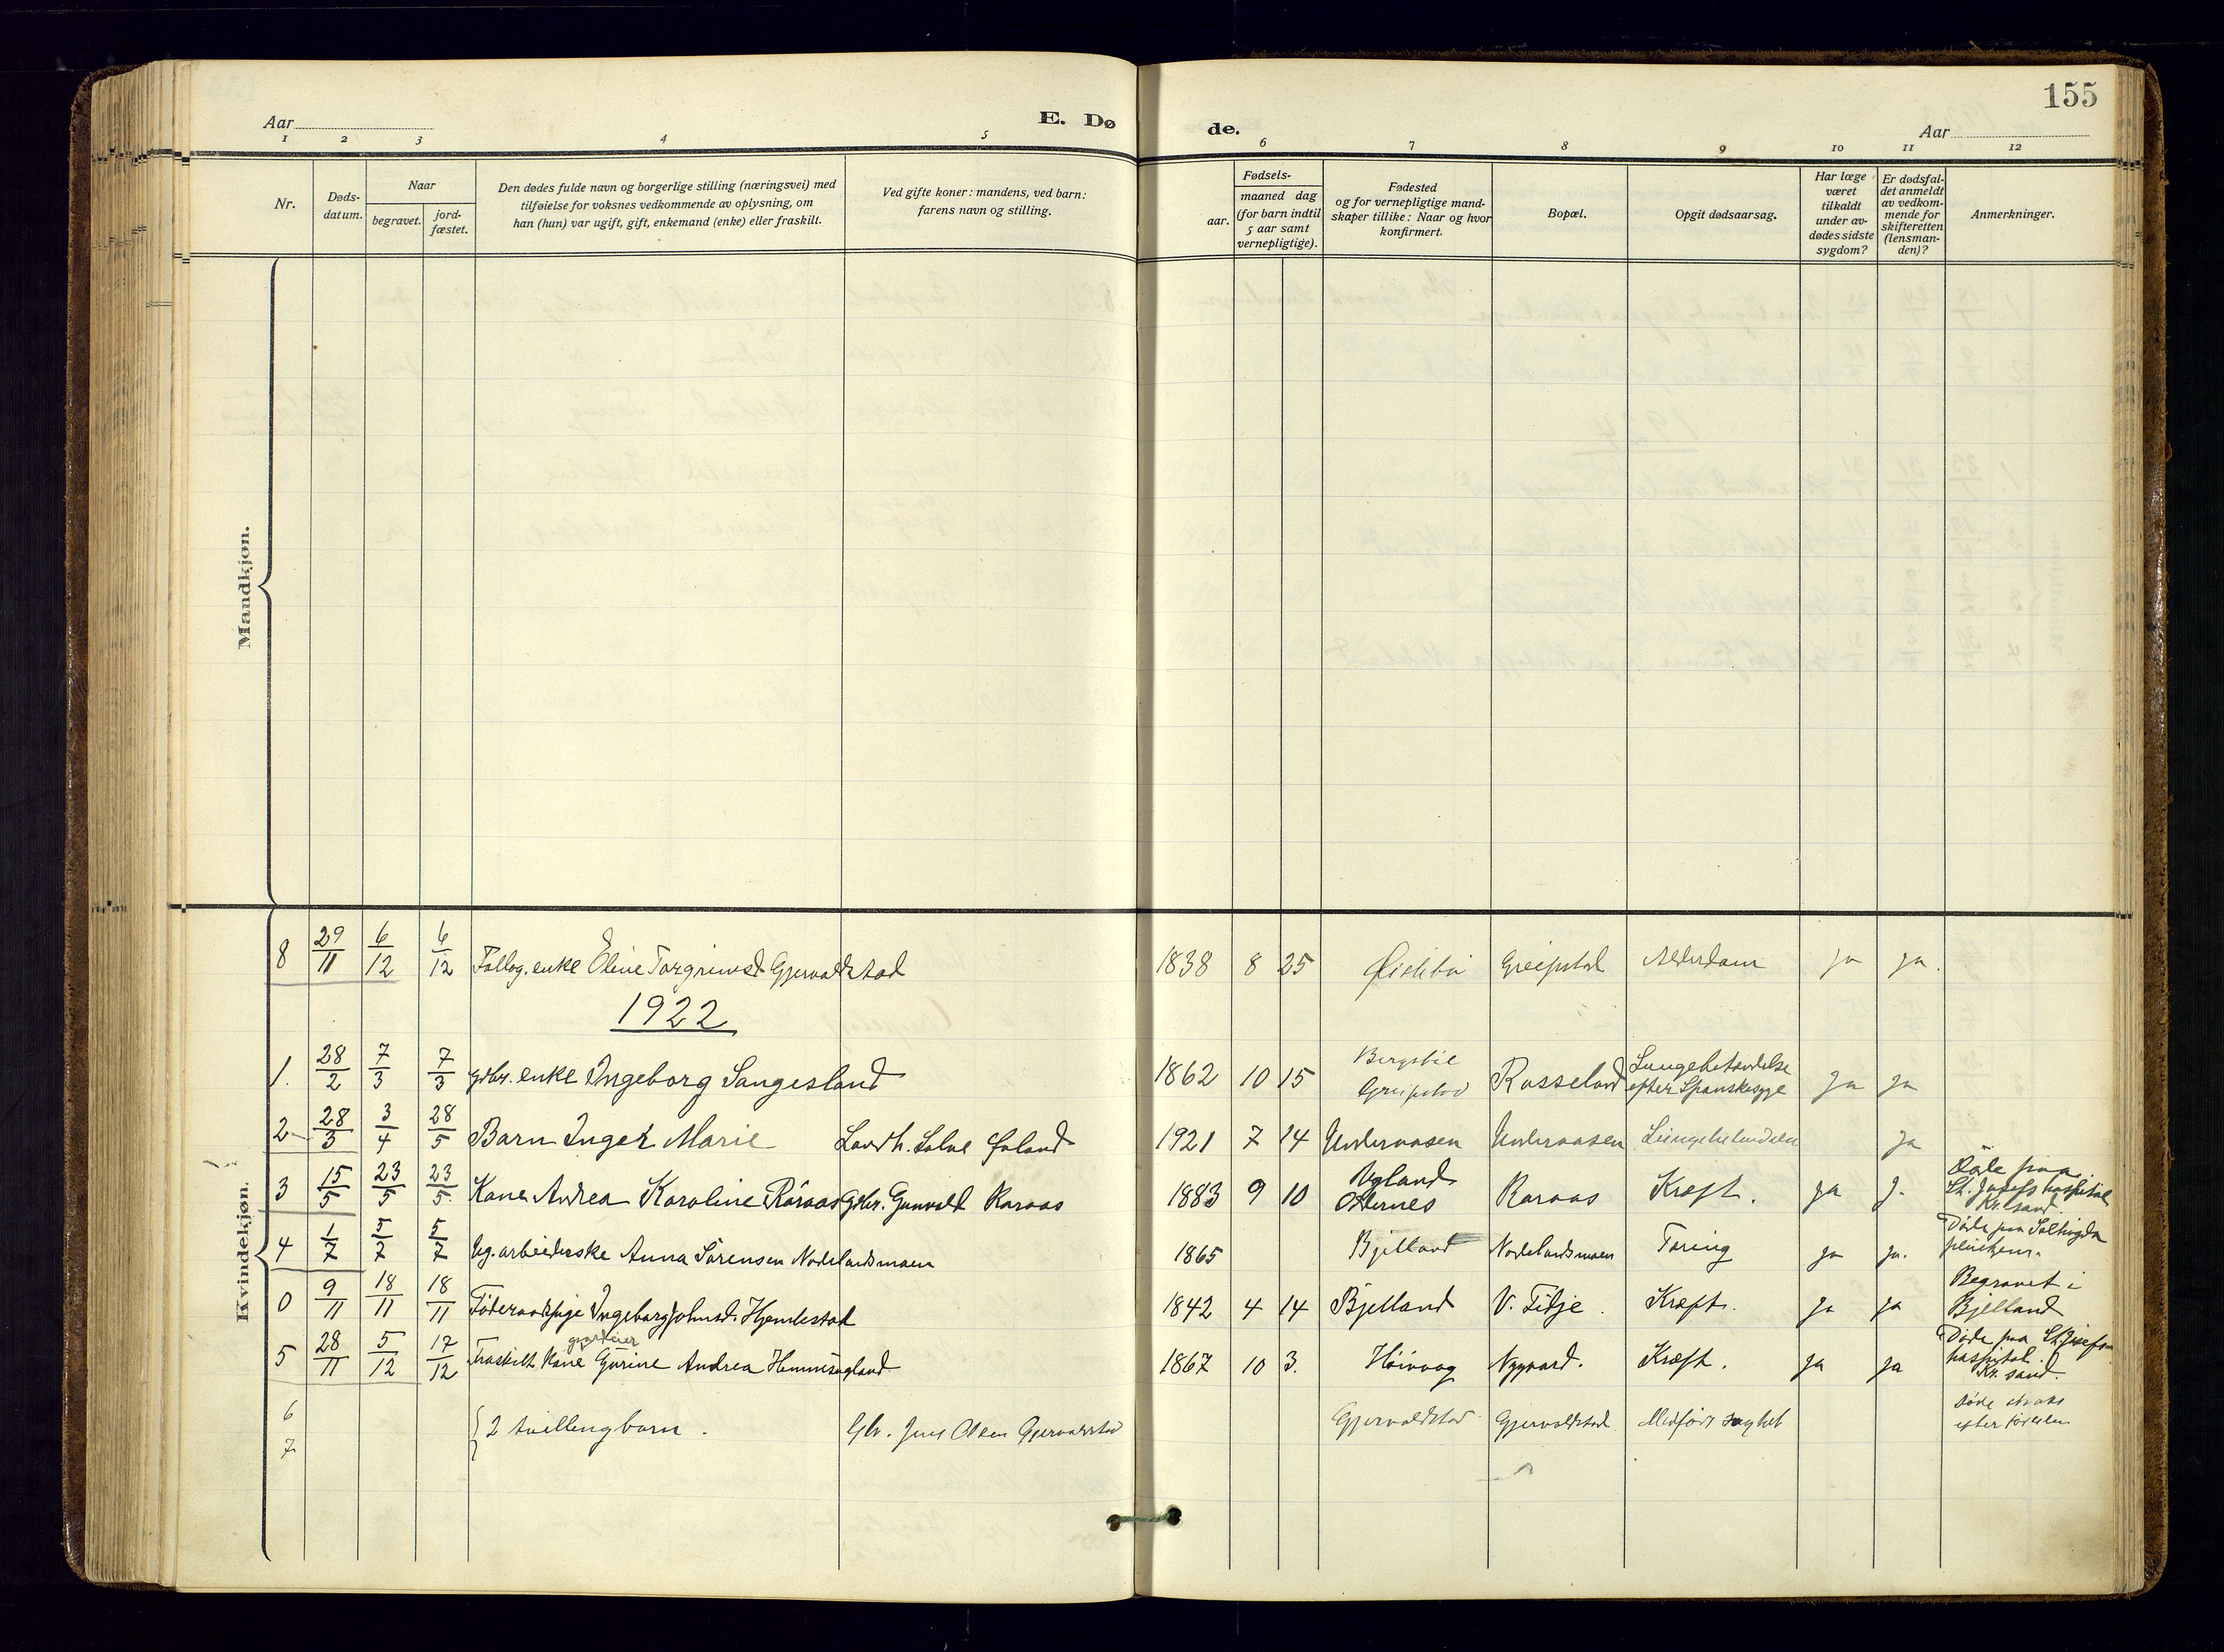 155
Aar
E. Dø
de.
Aar
1 2 3 4 5 6 7 8 9 10 11 12
Nr.
Døds-
datum.
Naar
begravet.
jord-
fæstet.
Den dødes fulde navn og borgerlige stilling (næringsvei) med
tilføielse for voksnes vedkommende av oplysning, om
han (hun) var ugift, gift, enkemand (enke) eller fraskilt.
Ved gifte koner: mandens, ved barn:
farens navn og stilling.
Fødsels-
aar.
maaned dag
(for barn indtil
5 aar samt
vernepligtige).
Fødested
og for vernepligtige mand-
skaper tillike: Naar og hvor
konfirmert.
Bopæl.
Opgit dødsaarsag.
Har læge
været
tilkaldt
under av-
dødes sidste
sygdom?
Er dødsfal-
det anmeldt
av vedkom-
mende for
skifteretten
(lensman-
den)?
Anmerkninger.
Mandkjøn.
Kvindekjøn.
8 29/11 6/12 6/12 enke Eline Torgrimsd. Gjervoldstad 1838 8 25 Greipstad Alderdom ja ja.
1922
1. 28/2 7/3 7/3 gdbr. enke Ingeborg Sangesland 1862 10 15 Greipstad Rosseland Lungebetændelse
efter Spanskesyge ja ja
2 28/3 3/4 28/5 Barn Inger Marie Solve Øvland 1921 7 14 Underaasen Underaasen Lungebetændelse ja
3 15/5 23/5 23/5 Kone Andrea Karoline Råraas Gdbr. Gunvald Raraas 1883 9 10 Vegland
Østernes Raraas Kræft. ja j. Døde paa
St. Josefs hospital
Kr.sand.
4 1/7 5/7 5/7 Ug. arbeiderske Anna Sørensen Nodelandsmoen 1865 Bjelland Nodelandsmoen Tæring ja ja. Døde paa
0 9/11 18/11 18/11 Føderaadspige Ingeborg Johnsd. Hjemlestad 1842 4 14 Bjelland V. Titje. Kræft. ja ja Begravet i
Bjelland
5 28/11 5/12 17/12 Fraskilt Kone gaardeier Gurine Andrea 1867 10 3. Høivaag Nygaard. Kræft. ja ja Døde paa St. Josefs
hospital.
Kr. sand.
6
7 2 tvillingbarn. Gbr. Jens Olsen Gjervoldstad Gjervoldstad Gjervoldstad Medfødt svaghet Døde straks
efter fødselen